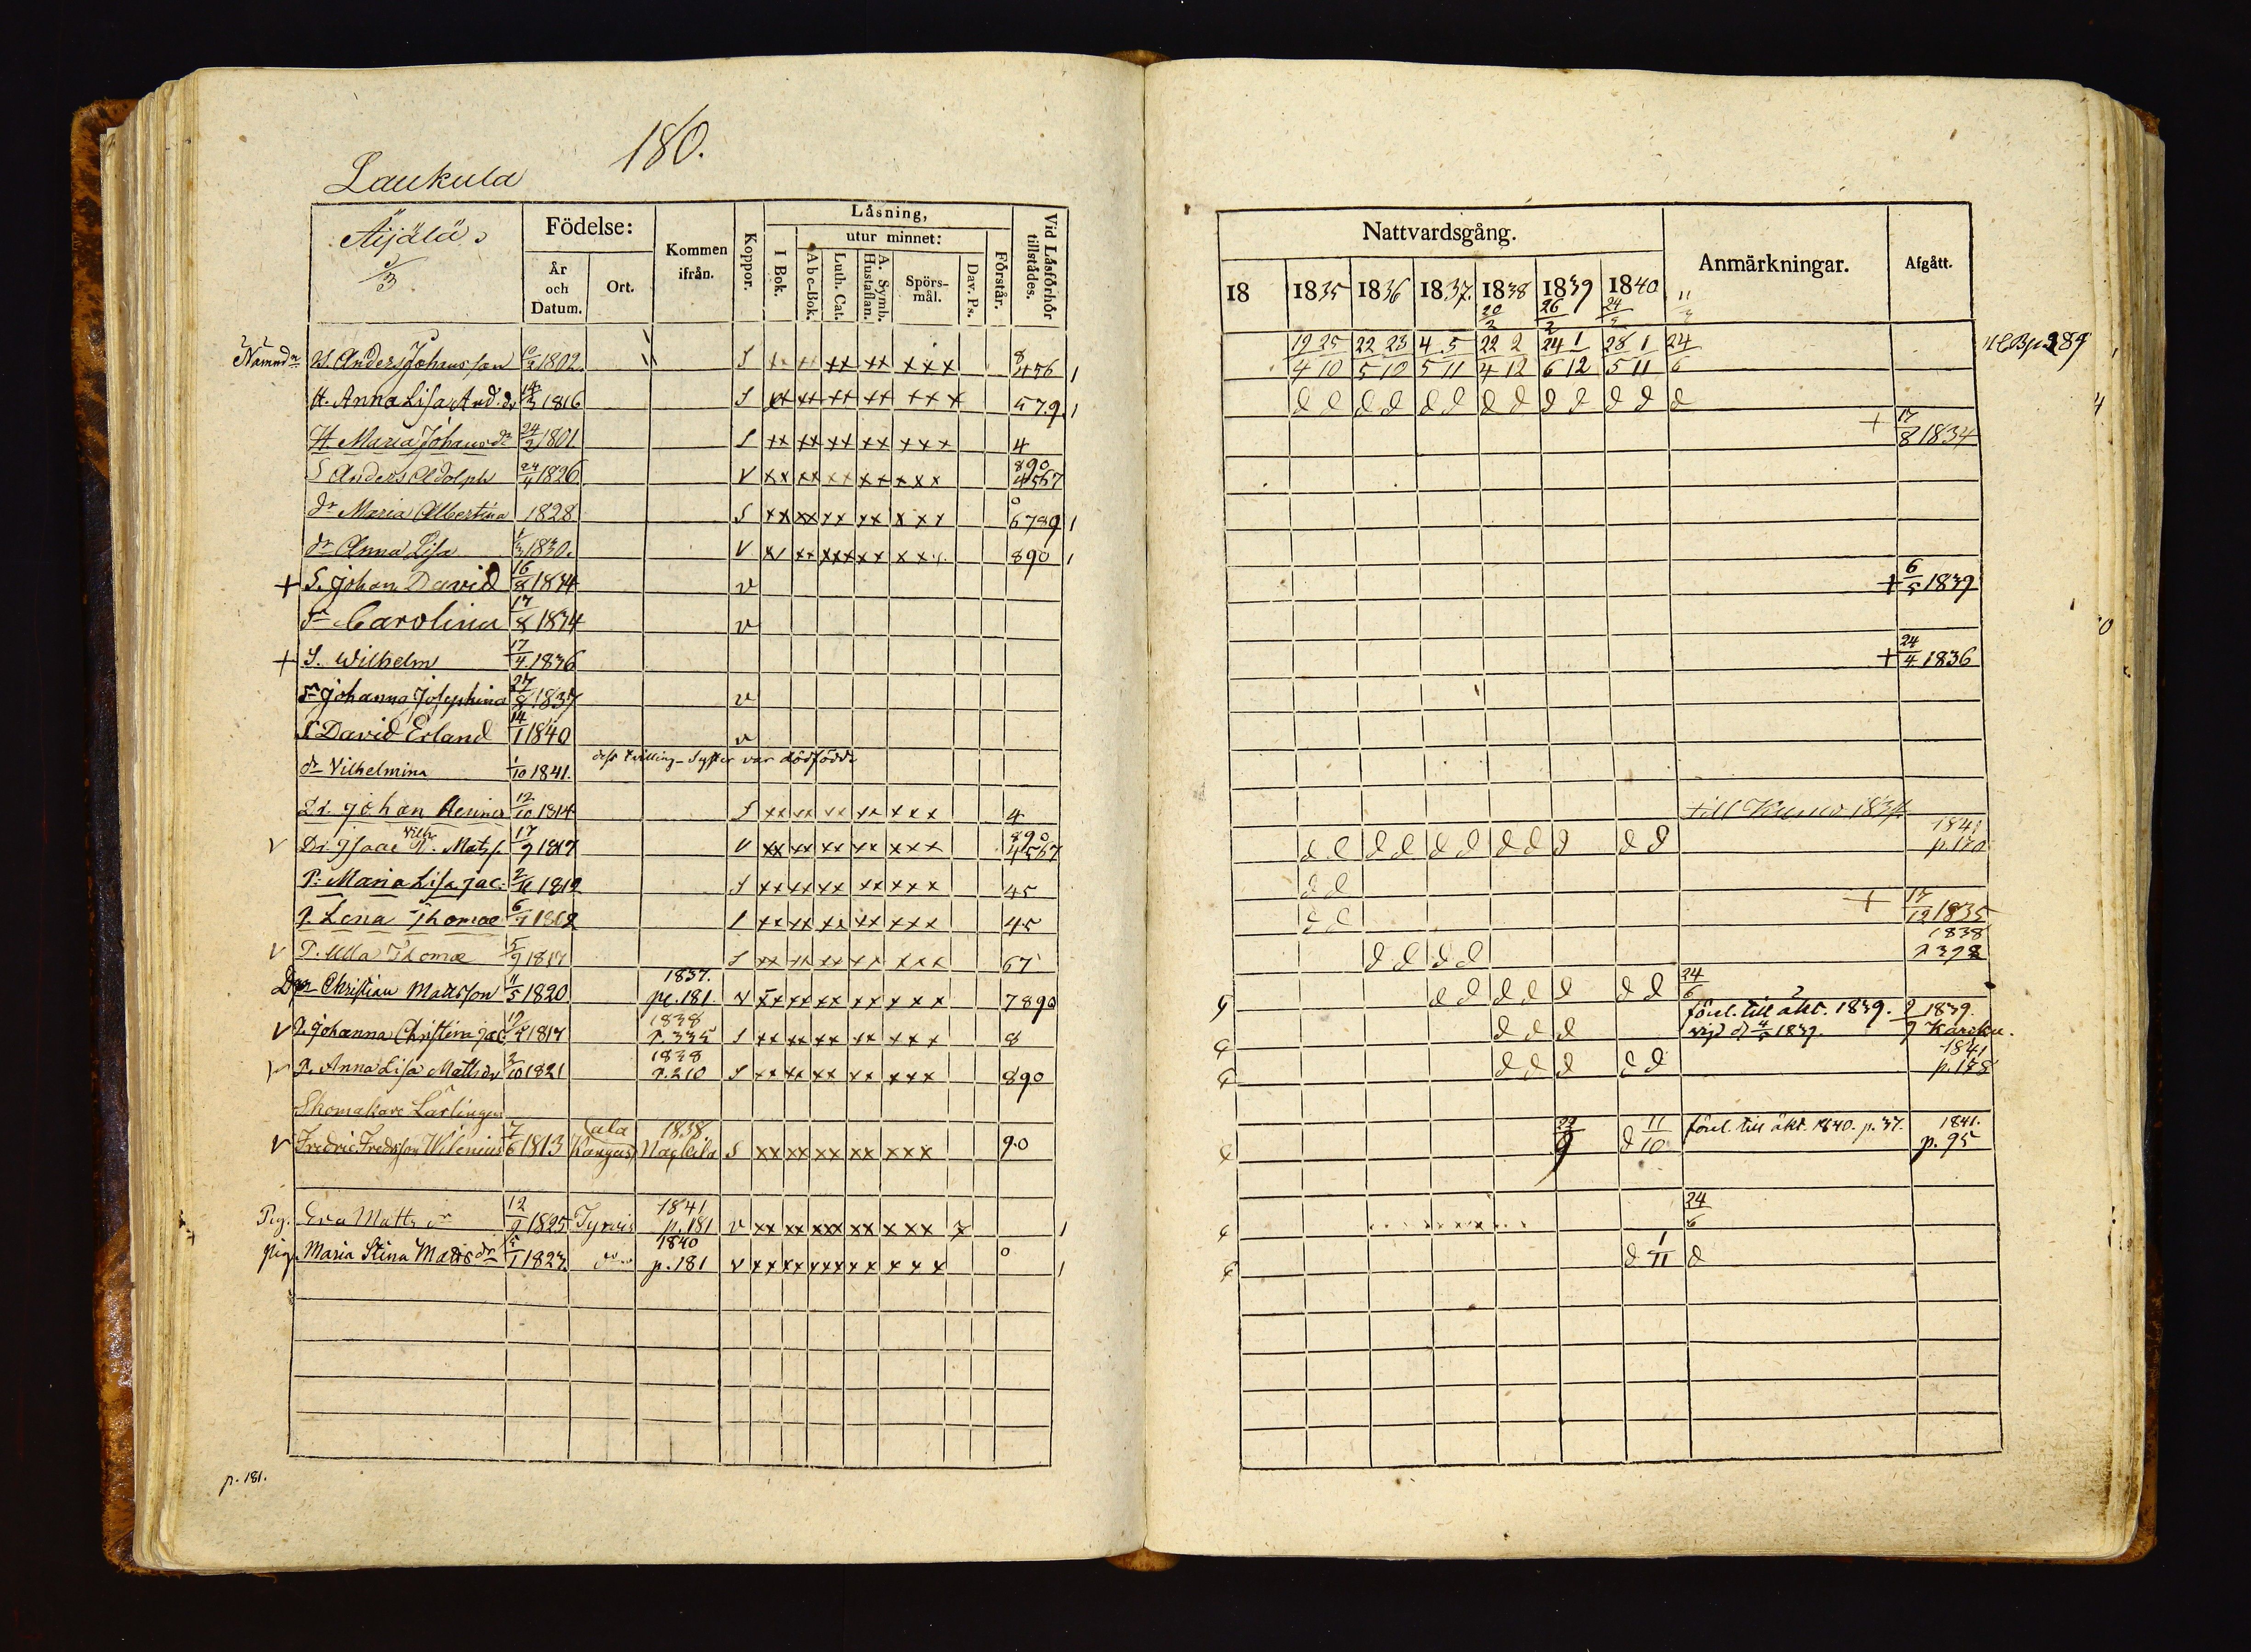 180.
Laukula
Äijälä
Födelse:
År och Datum.
Ort.
Kommen ifrån.
Koppor.
Läsning,
I Bok.
utur minnet:
Abc-Bok.
Luth. Cat.
A. Symb. Hustaflan.
Spörsmål.
Dav. Ps.
Förstår.
Vid Läsförhör tillstädes.
Nämnd:n Anders Johansson 1802 S xx xx xx xx xxx 8 456 1
H. Anna Lisa And. dr 1816 S xx xx xx xx xxx 579 1
H. Maria Johansdr 24/2 1801 S xx xx xx xx xxx 4
S Anders Adolph 24/4 1826 V xx xx xx xx xxx 890 4567
dr Maria Albertina 1828 S xx xx xx xx xxx 0 6789 1
dr Anna Lisa 1830. V 890 1
+ S. Johan David 16/8 1834 v
dr Carolina 17/8 1834 v
+ S. Wilhelm 17/4 1836
dr Johanna Josephina 27/8 1837 v
S David Erland 14/1 1840 v
dr Vilhelmina 1/10 1841. dess tvilling-Syster var dödfödd
Dr. Johan Henric 12/10 1814 S xx xx xx xx xxx 4
v Dr. Isaac Vilh. Mats. 17/9 1817 V xx xx xx xx xxx 890 4567
P. Maria Lisa Jac. 1812 S xx xx xx xx xxx 45
P. Lena Thomae xx xx xx xx xxx 45
v P. Ulla Thomae 5/9 1817 S xx xx xx xx xxx 67
Dr Christian Mattsson 11/5 1820 1837. pg. 181 v xx xx xx xx xxx 7890
v P. Johanna Christina Jac. 1817 1838 p. 335 S xx xx xx xx xxx 8
P. Anna Lisa Mattsdr 3/10 1821 1838 p. 210 S xx xx xx xx xxx 890
Skomakare Lärlingen
v Fredric Fredrsson Wilenius 7/6 1813 Kangas 1838 S xx xx xx xx xxx 90
Pig. Eva Mattsdr 12/2 1825 Tyrvis 1841 p. 181 v xx xx xxx xx xxx x 1
Pig. Maria Stina Mattsdr 5/1 1823 do 1840 p. 181 v xx xx xxx xx xxx 0 1
p. 181.
Nattvardsgång.
Anmärkningar.
Afgått.
18 1835 1836 1837. 1838 1839 1840
20/2 26/2 24/2
19/4 25/10 22/5 23/10 4/5 5/11 22/4 2/12 24/6 1/12 28/5 1/11 24/6 HCB p. 289
d d d d d d d d d d d d d
+ 17/8 1834
+ 6/5 1839
+ 24/4 1836
till 1834
d d d d d d d d d d d 1841 p. 170
d d
d d + 17/12 1835
d d d d 1838 p 398
d d d d d d d 24/6
d d d förel. till äkt. 1839. vigd d 4/5 1839. 9/9 1839. Karcku.
d d d d d 1841 p. 188
22/9 d 11/10 förel. till äkt. 1840. p. 37. 1841. p. 95
24/6
d 1/11 d